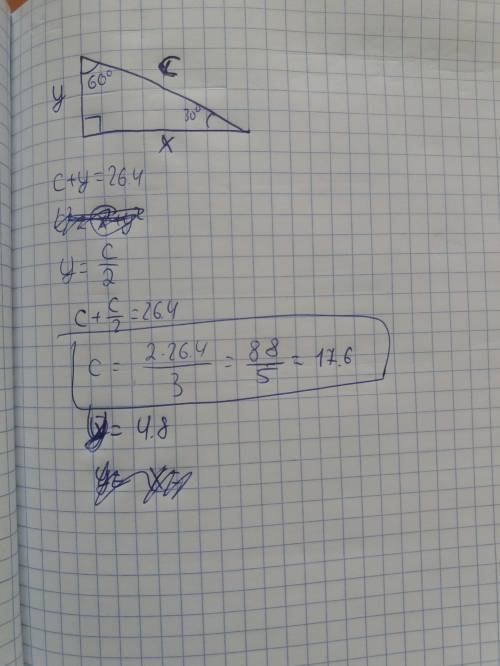 c
60°
y
30°
x
c+y=26.4
y = c/2
c + c/2 = 26.4
c = 2·26.4/3 = 88/5 = 17.6
= 4.8